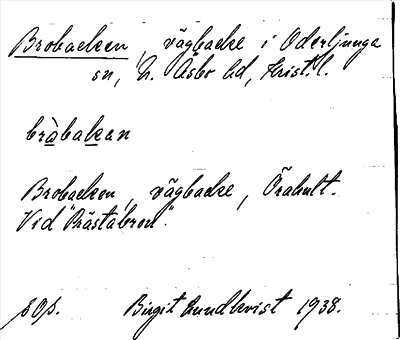 Brobacken, vägbacke i Oderljunga
sn, N. Åsbo hd, Krist. l.
bràbakan
Brobacken, vägbacke, Örahult.
Vid "Prästabron".
sOp. Birgit Lundkvist 1938.